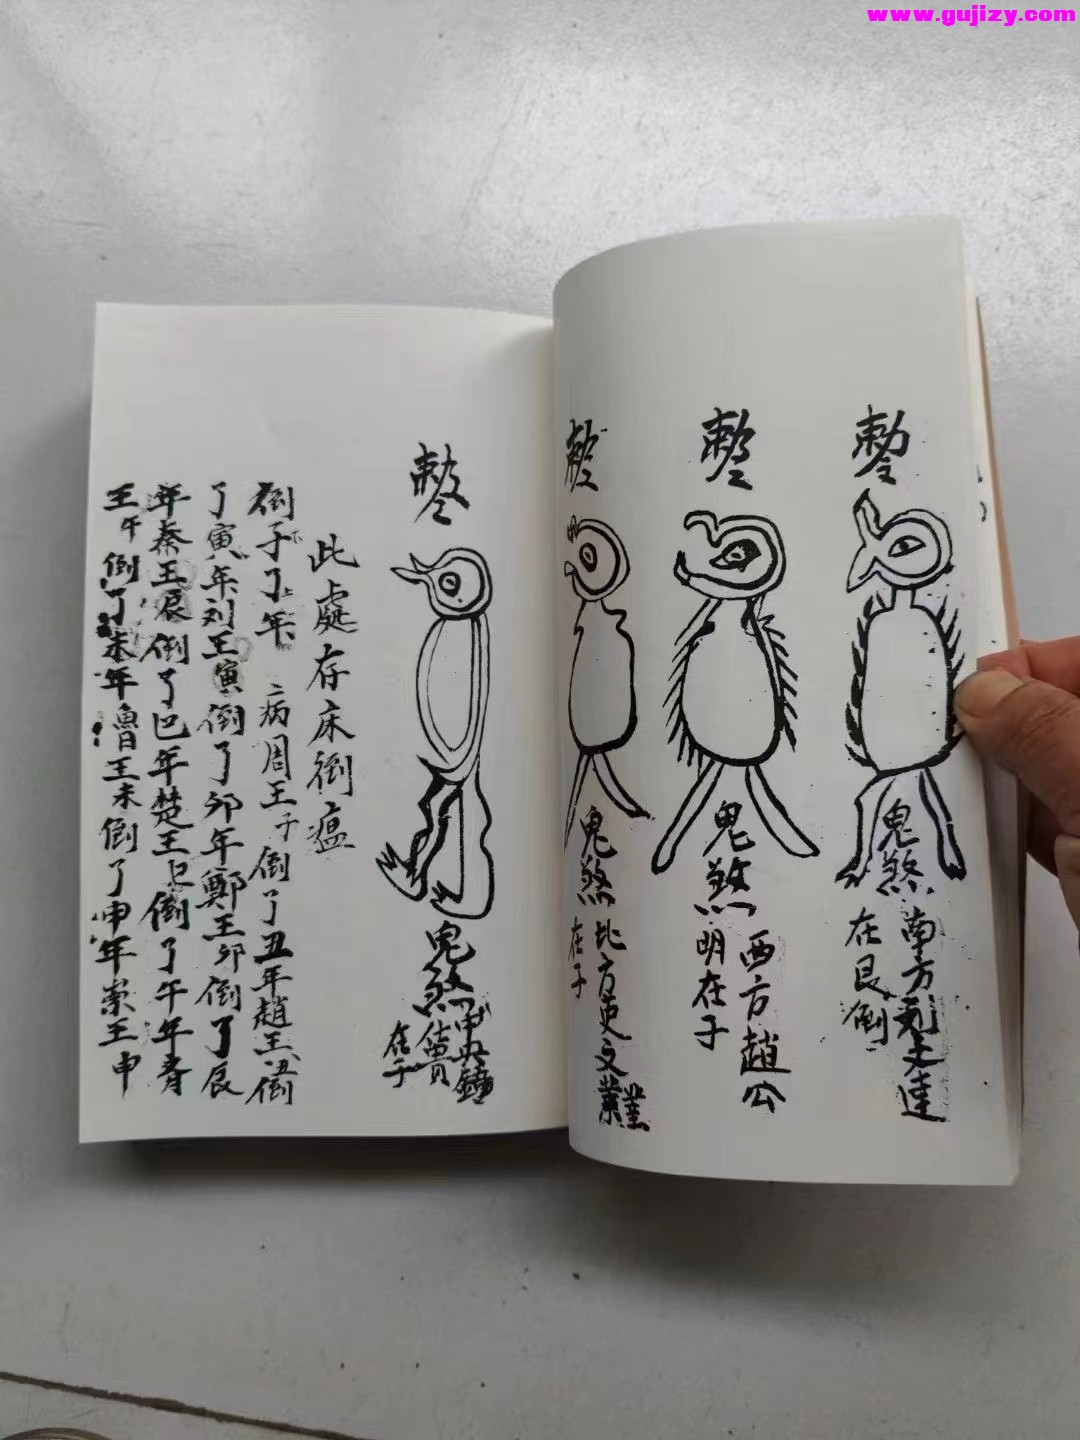 www.gujizy.com
鬼煞
南方刘文達
在艮倒
鬼煞
西方趙公
明在子
鬼煞
北方史文業
在子
鬼煞
中央鍾
仕貴
在子
此處存床倒瘟
倒子了子年 病周王子倒了丑年趙王丑倒
了寅年刘王寅倒了卯年鄭王卯倒了辰
年秦王辰倒了巳年楚王巳倒了午年齊
王午倒了未年魯王未倒了申年崇王申